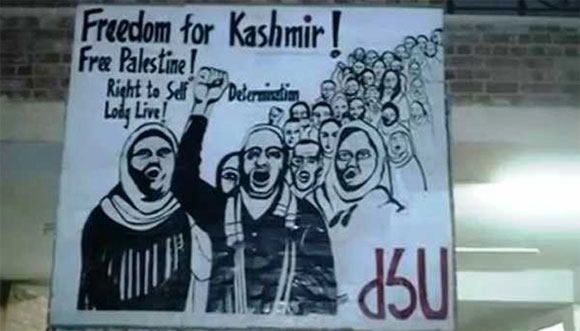 Freedom for Kashmir!
Free Palestine!
Right to Self Determination
Lody Live!
dSU